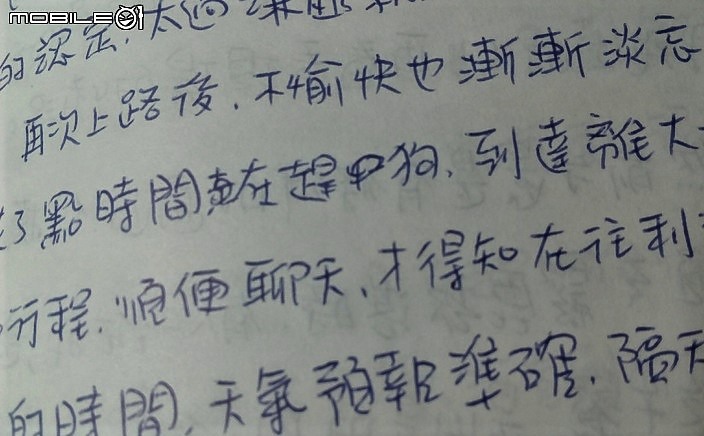 MOBILE01
的認定,太過
再次上路後,不愉快也漸漸淡忘
了點時間在趕甲狗,到達離大
行程,順便聊天,才得知在往利
的時間,天氣預報準確,隔天